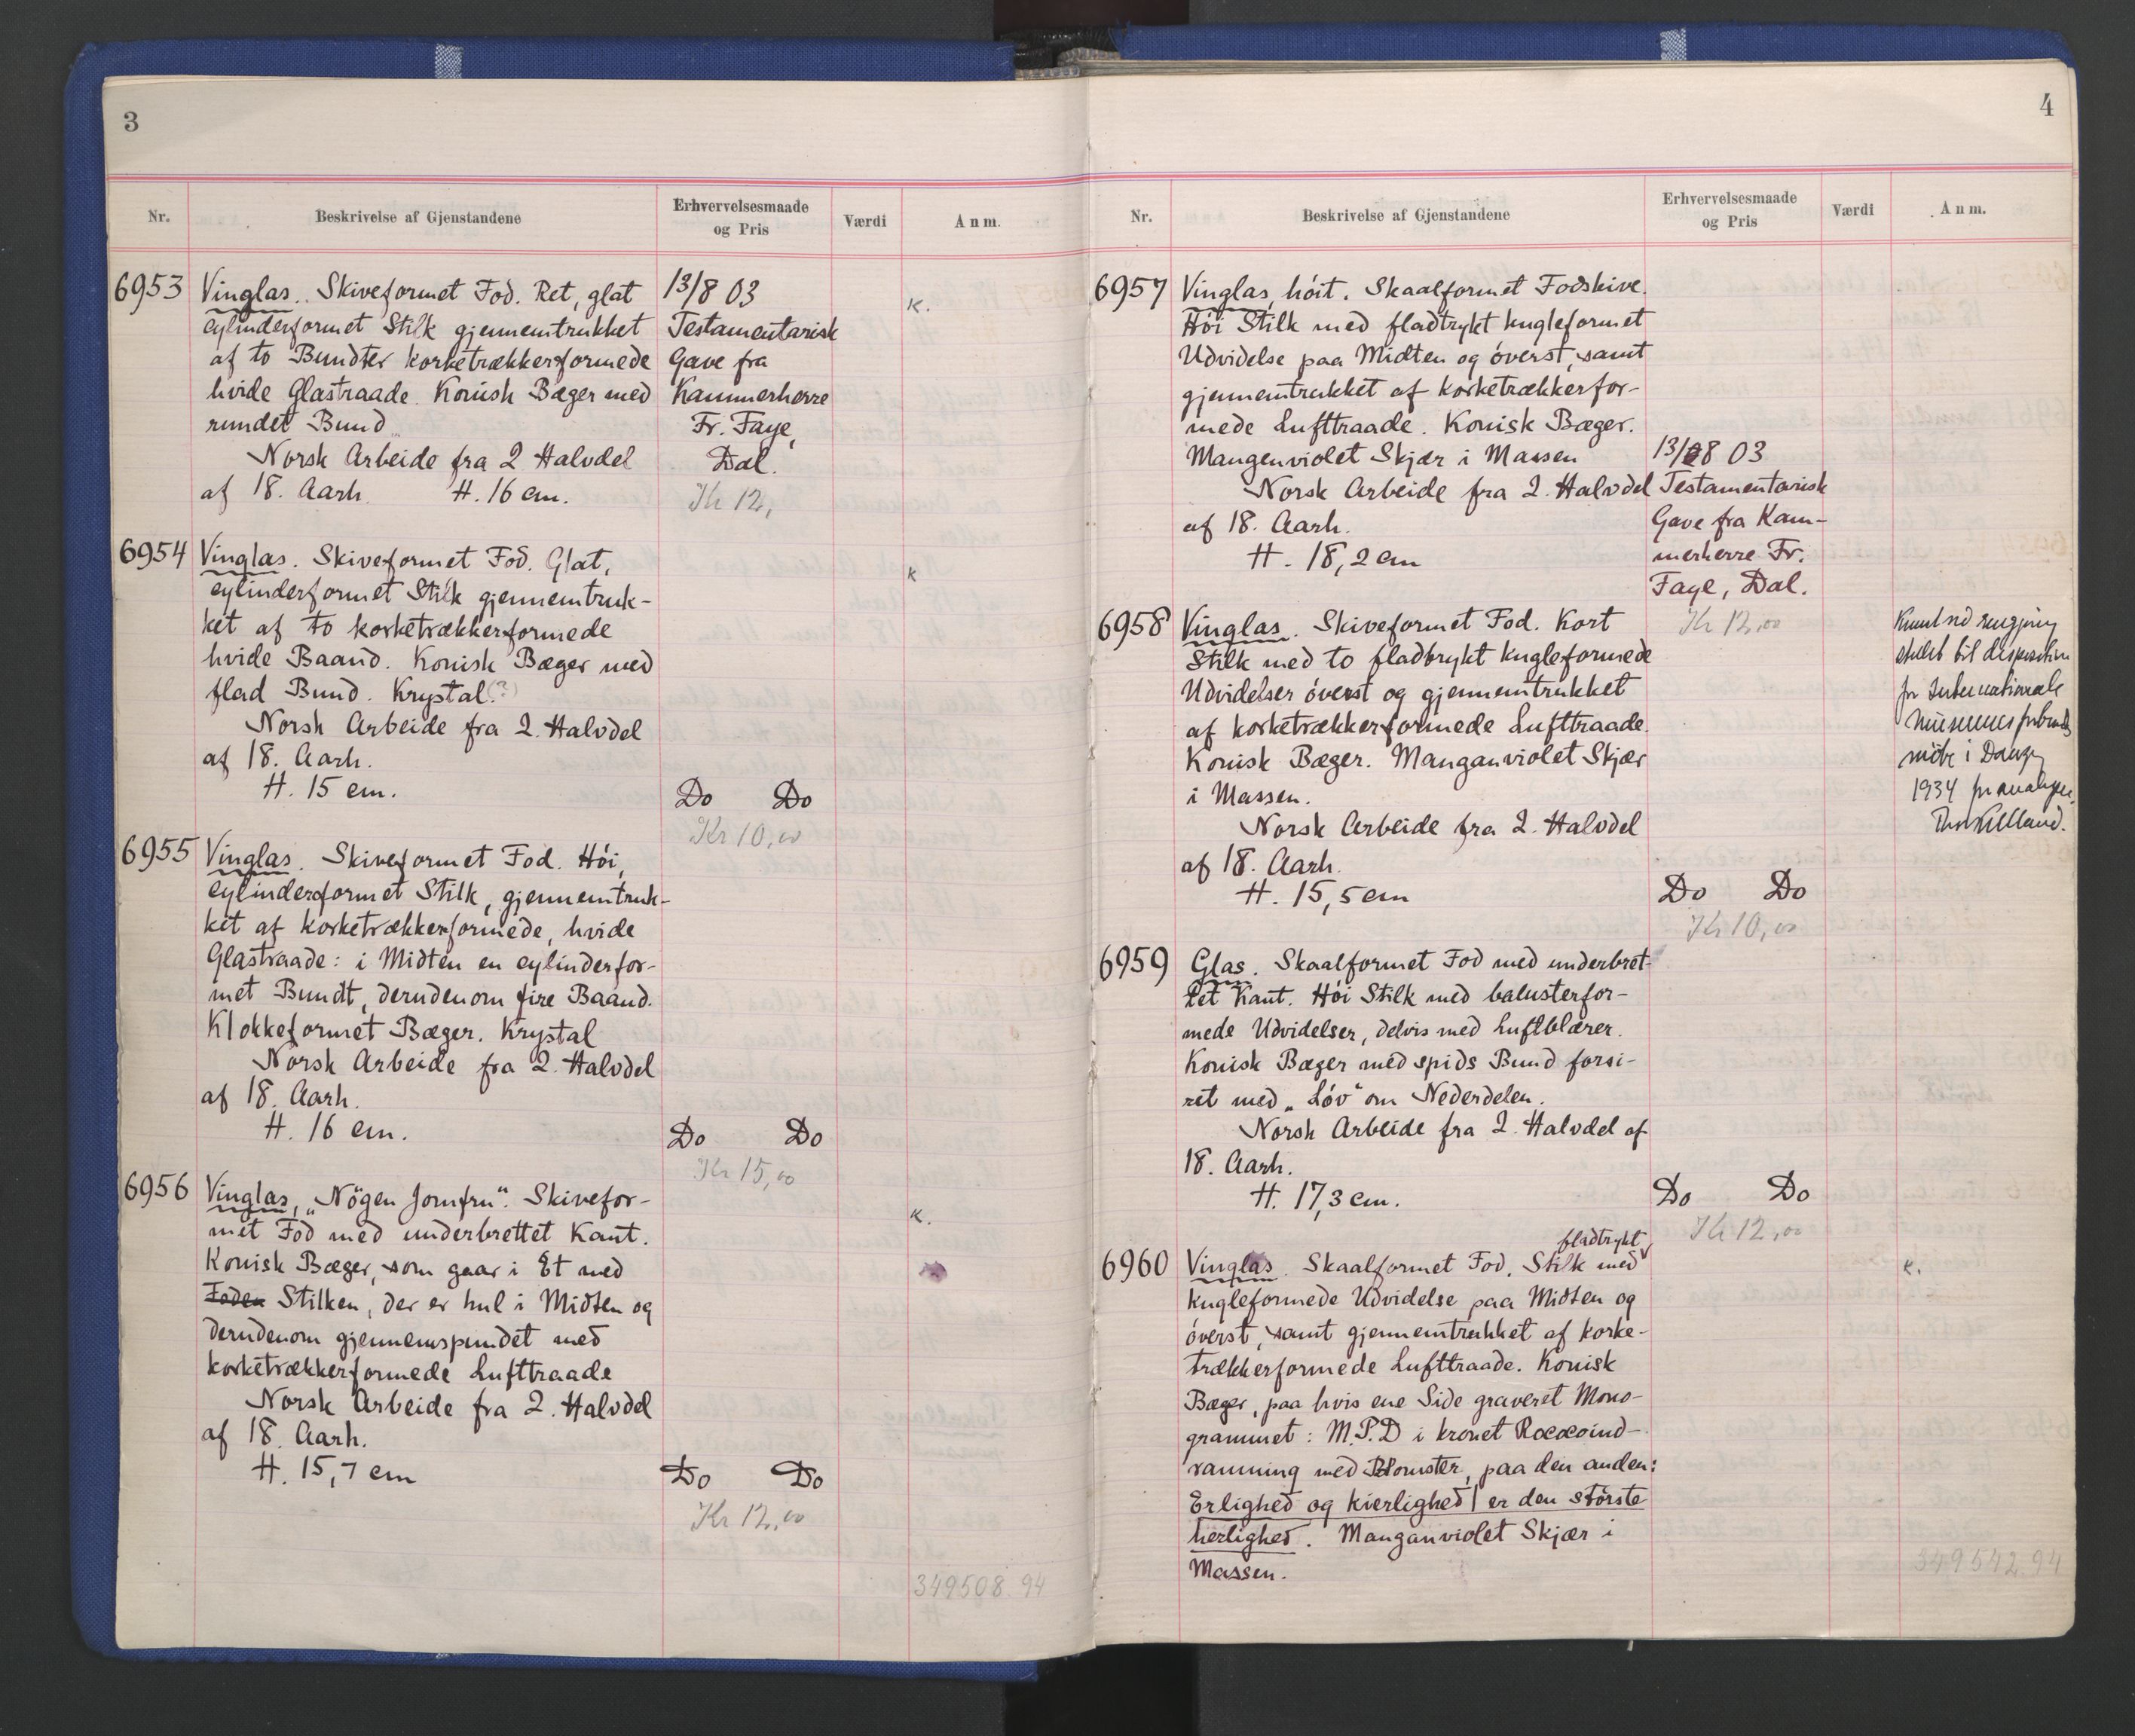 3
Nr.
Beskrivelse af Gjenstandene
Erhvervelsesmaade
og Pris
Værdi
Anm.
6953
Vinglas. Skiveformet Fod. Ret, glat
cylinderformet Stilk gjennemtrukket
af to Bundter korketrækkerformede
hvide Glastraade. Konisk Bæger med
rundet Bund.
Norsk Arbeide fra 2 Halvdel
af 18. Aarh. H. 16 cm.
13/8 03
Testamentarisk
Gave fra
Kammerherre
Fr. Faye,
Dal.
Kr 12,
K.
6954
Vinglas. Skiveformet Fod. Glat,
cylinderformet Stilk gjennemtruk-
ket af to korketrækkerformede
hvide Baand. Konisk Bæger med
flad Bund. Krystal (?)
Norsk Arbeide fra 2. Halvdel
af 18. Aarh.
H. 15 cm.
Do Do
Kr 10,00
K
6955
Vinglas. Skiveformet Fod. Höi,
cylinderformet Stilk, gjennemtruk-
ket af korketrækkerformede, hvide
Glastraade: i Midten en cylinderfor-
met Bundt, derudenom fire Baand.
Klokkeformet Bæger. Krystal
Norsk Arbeide fra 2. Halvdel
af 18. Aarh.
H. 16 cm.
Do Do
Kr 15,00
6956
Vinglas, „Nögen Jomfru“. Skivefor-
met Fod med underbrettet Kant.
Konisk Bæger, som gaar i Et med
Foden Stilken, der er hul i Midten og
derudenom gjennemspundet med
korketrækkerformede Lufttraade
Norsk Arbeide fra 2. Halvdel
af 18. Aarh.
H. 15,7 cm
Do Do
Kr 12,00
K.
349508.94
4
Nr.
Beskrivelse af Gjenstandene
Erhvervelsesmaade
og Pris
Værdi
Anm.
6957
Vinglas, höit. Skaalformet Fodskive.
Höi Stilk med fladtrykt kugleformet
Udvidelse paa Midten og överst, samt
gjennemtrukket af korketrækkerfor-
mede Lufttraade. Konisk Bæger.
Manganviolet Skjær i Massen
Norsk Arbeide fra 2. Halvdel
af 18. Aarh.
H. 18,2 cm
13/8 03
Testamentarisk
Gave fra Kam-
merherre Fr.
Faye, Dal.
Kr 12,00
6958
Vinglas. Skiveformet Fod. Kort
Stilk med to fladtrykt kugleformede
Udvidelser överst og gjennemtrukket
af korketrækkerformede Lufttraade.
Konisk Bæger. Manganviolet Skjær
i Massen.
Norsk Arbeide fra 2. Halvdel
af 18. Aarh.
H. 15,5 cm
Do Do
Kr 10,00
Knust ved rengjøring
stillet til disposition
for Internationale
møte i
1934 for analyse.
6959
Glas. Skaalformet Fod med underbret-
tet Kant. Höi Stilk med balusterfor-
mede Udvidelser, delvis med Luftblærer.
Konisk Bæger med spids Bund forsi-
ret med „Löv“ om Nederdelen.
Norsk Arbeide fra 2. Halvdel af
18. Aarh.
H. 17,3 cm.
Do Do
Kr 12,00
6960
fladtrykt
Vinglas. Skaalformet Fod. Stilk med
kugleformede Udvidelse paa Midten og
överst, samt gjennemtrukket af korke-
trækkerformede Lufttraade. Konisk
Bæger, paa hvis ene Side graveret Mono-
grammet: M.P.D i kronet Rococoind-
ramning med Blomster, paa den anden:
Erlighed og kierlighed | er den störste
herlighed. Manganviolet Skjær i
Massen.
K.
349542.94